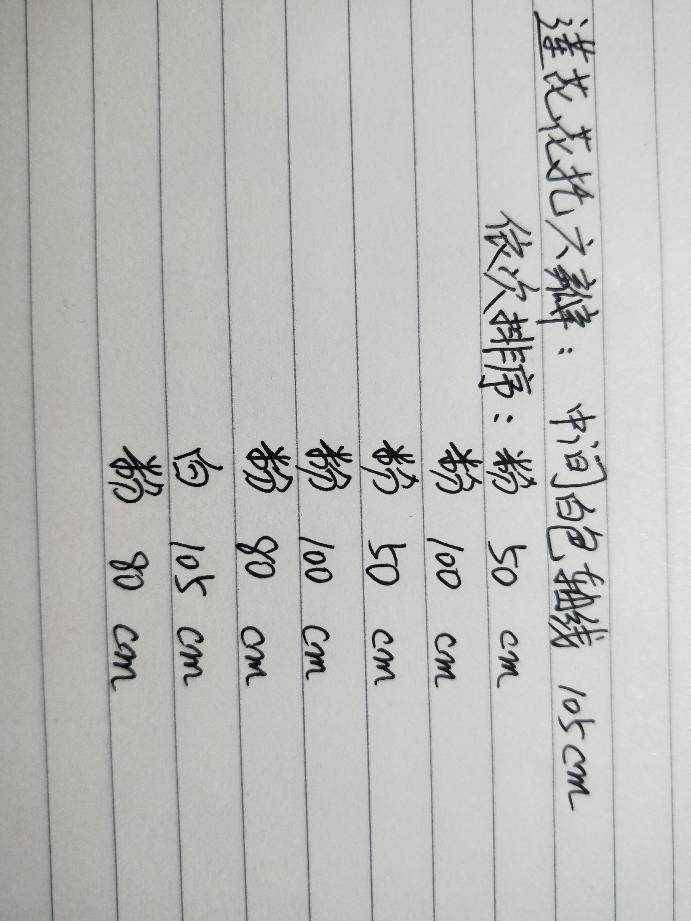 莲花花托六瓣： 中间白色轴线 105cm
依次排序：粉 50 cm
粉 100 cm
粉 50 cm
粉 100 cm
粉 80 cm
白 105 cm
粉 80 cm